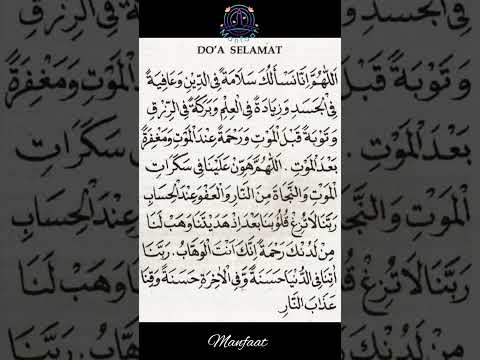 DO'A SELAMAT
اَللّٰهُمَّ اِنَّا نَسْأَلُكَ سَلَامَةً فِى الدِّيْنِ وَعَافِيَةً
فِى الْجَسَدِ وَزِيَادَةً فِى الْعِلْمِ وَبَرَكَةً فِى الرِّزْقِ
وَتَوْبَةً قَبْلَ الْمَوْتِ وَرَحْمَةً عِنْدَ الْمَوْتِ وَمَغْفِرَةً
بَعْدَ الْمَوْتِ . اَللّٰهُمَّ هَوِّنْ عَلَيْنَا فِى سَكَرَاتِ
الْمَوْتِ وَالنَّجَاةَ مِنَ النَّارِ وَالْعَفْوَ عِنْدَ الْحِسَابِ
رَبَّنَا لَا تُزِغْ قُلُوْبَنَا بَعْدَ اِذْ هَدَيْتَنَا وَهَبْ لَنَا
مِنْ لَدُنْكَ رَحْمَةً اِنَّكَ اَنْتَ الْوَهَّابُ . رَبَّنَا
اٰتِنَا فِى الدُّنْيَا حَسَنَةً وَّفِى الْاٰخِرَةِ حَسَنَةً وَّقِنَا
عَذَابَ النَّارِ
Manfaat